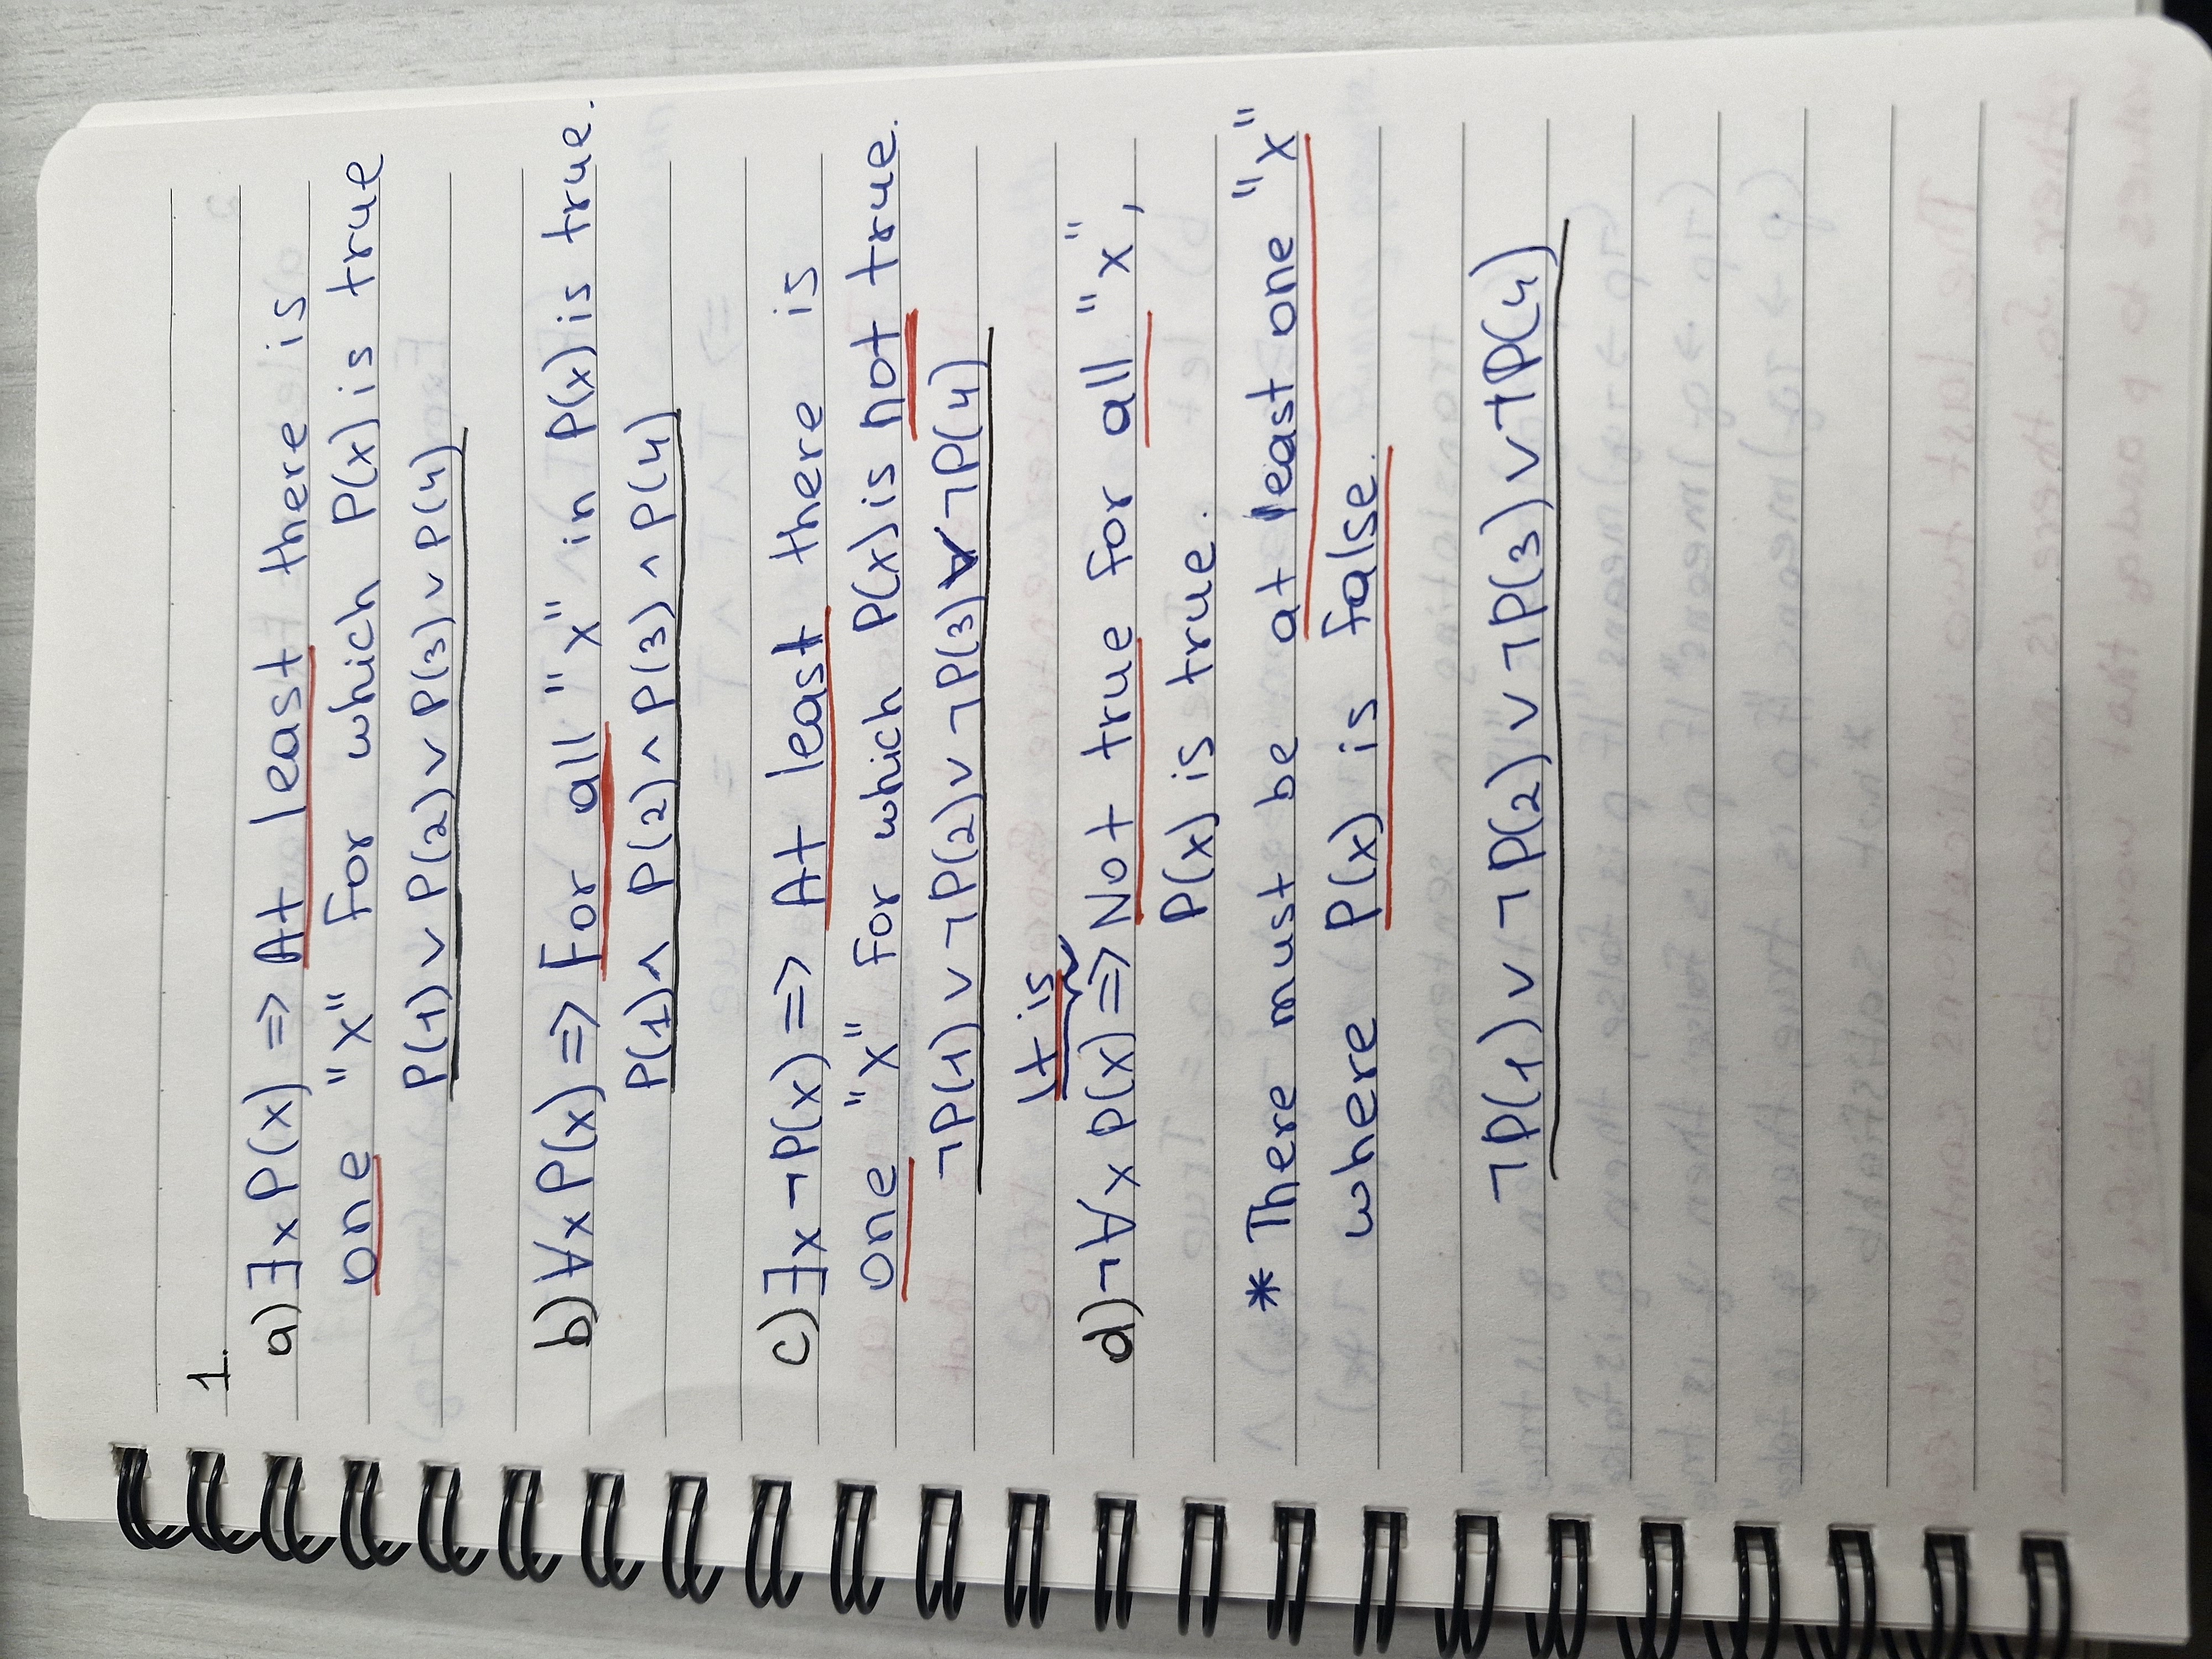 1.
a) ∃x P(x) => At least there is
one "x" for which P(x) is true
P(1) ∨ P(2) ∨ P(3) ∨ P(4)
b) ∀x P(x) => For all "x" in P(x) is true.
P(1) ∧ P(2) ∧ P(3) ∧ P(4)
c) ∃x ¬P(x) => At least there is
one "x" for which P(x) is not true.
¬P(1) ∨ ¬P(2) ∨ ¬P(3) ∨ ¬P(4)
It is
d) ¬∀x P(x) => Not true for all "x",
P(x) is true.
* There must be at least one "x"
where P(x) is false.
¬P(1) ∨ ¬P(2) ∨ ¬P(3) ∨ ¬P(4)